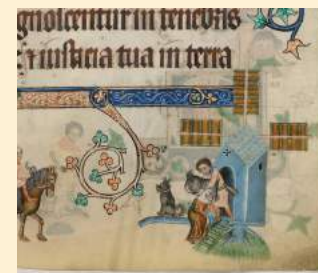 gnoscentur in tenebris
et iusticia tua in terra